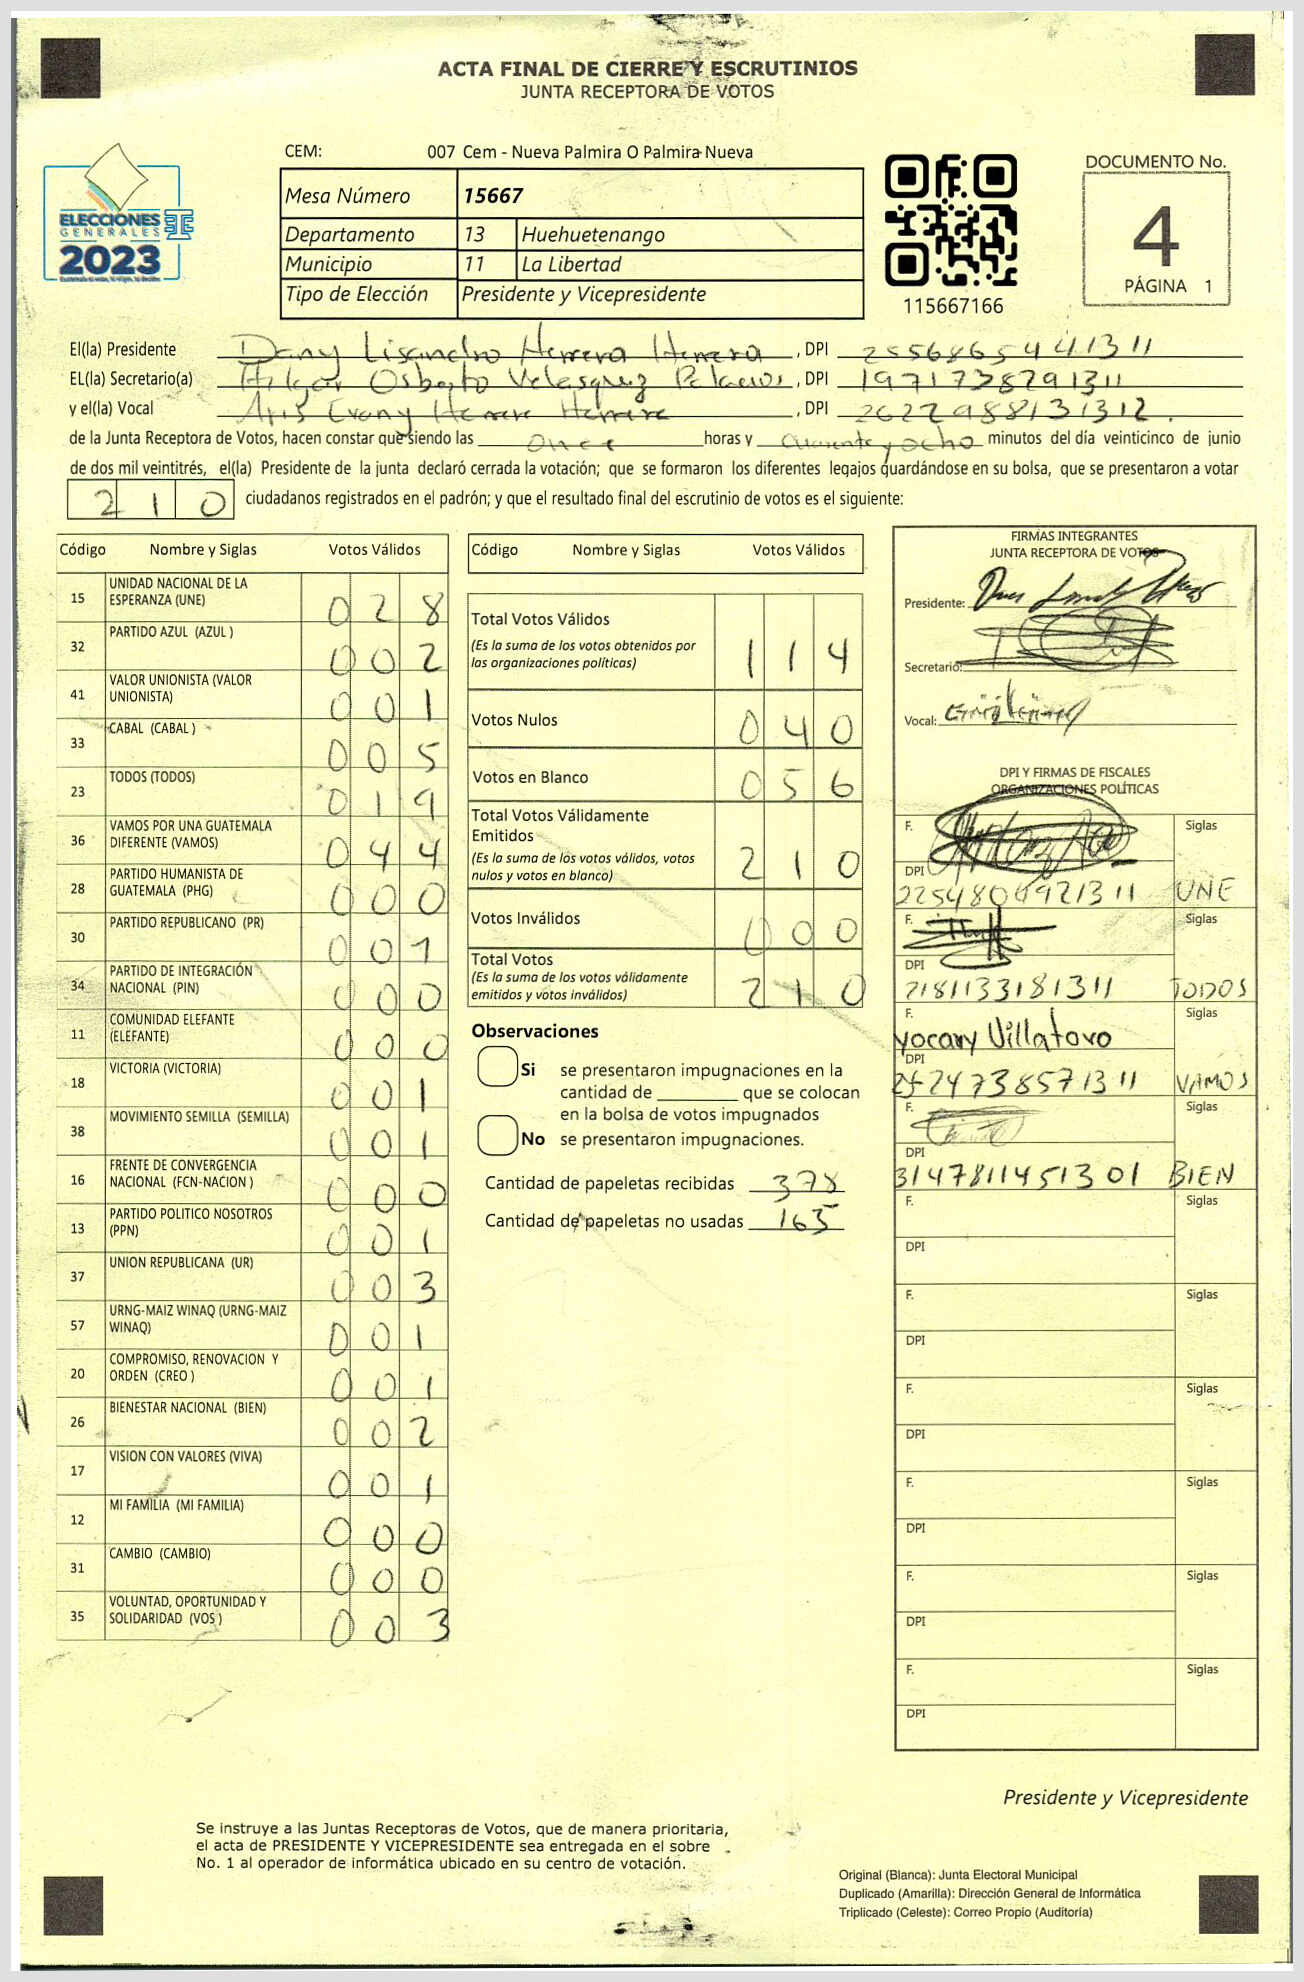 ACTA FINAL DE CIERRE Y ESCRUTINIOS
JUNTA RECEPTORA DE VOTOS
CEM: 007 Cem - Nueva Palmira O Palmira Nueva
ELECCIONES
GENERALES
2023
Mesa Número 15667
Departamento 13 Huehuetenango
Municipio 11 La Libertad
Tipo de Elección Presidente y Vicepresidente
115667166
DOCUMENTO No.
4
PÁGINA 1
El(la) Presidente Dany Lisandro Herrera Herrera , DPI 2556865441311
EL(la) Secretario(a) Osberto Velasquez Palacios , DPI 1971738291311
y el(la) Vocal Herrera Herrera , DPI 2622988131312
de la Junta Receptora de Votos, hacen constar que siendo las once horas y cuarenta y ocho minutos del día veinticinco de junio
de dos mil veintitrés, el(la) Presidente de la junta declaró cerrada la votación; que se formaron los diferentes legajos guardándose en su bolsa, que se presentaron a votar
210 ciudadanos registrados en el padrón; y que el resultado final del escrutinio de votos es el siguiente:
Código Nombre y Siglas Votos Válidos
15 UNIDAD NACIONAL DE LA
ESPERANZA (UNE) 028
32 PARTIDO AZUL (AZUL ) 002
41 VALOR UNIONISTA (VALOR
UNIONISTA) 001
33 CABAL (CABAL ) 005
23 TODOS (TODOS) 019
36 VAMOS POR UNA GUATEMALA
DIFERENTE (VAMOS) 044
28 PARTIDO HUMANISTA DE
GUATEMALA (PHG) 000
30 PARTIDO REPUBLICANO (PR) 001
34 PARTIDO DE INTEGRACIÓN
NACIONAL (PIN) 000
11 COMUNIDAD ELEFANTE
(ELEFANTE) 000
18 VICTORIA (VICTORIA) 001
38 MOVIMIENTO SEMILLA (SEMILLA) 001
16 FRENTE DE CONVERGENCIA
NACIONAL (FCN-NACION ) 000
13 PARTIDO POLITICO NOSOTROS
(PPN) 001
37 UNION REPUBLICANA (UR) 003
57 URNG-MAIZ WINAQ (URNG-MAIZ
WINAQ) 001
20 COMPROMISO, RENOVACION Y
ORDEN (CREO ) 001
26 BIENESTAR NACIONAL (BIEN) 002
17 VISION CON VALORES (VIVA) 001
12 MI FAMILIA (MI FAMILIA) 000
31 CAMBIO (CAMBIO) 000
35 VOLUNTAD, OPORTUNIDAD Y
SOLIDARIDAD (VOS ) 003
Código Nombre y Siglas Votos Válidos
Total Votos Válidos
(Es la suma de los votos obtenidos por
las organizaciones políticas) 114
Votos Nulos 040
Votos en Blanco 056
Total Votos Válidamente
Emitidos
(Es la suma de los votos válidos, votos
nulos y votos en blanco) 210
Votos Inválidos 000
Total Votos
(Es la suma de los votos válidamente
emitidos y votos inválidos) 210
Observaciones
Si se presentaron impugnaciones en la
cantidad de ________ que se colocan
en la bolsa de votos impugnados
No se presentaron impugnaciones.
Cantidad de papeletas recibidas 378
Cantidad de papeletas no usadas 165
FIRMAS INTEGRANTES
JUNTA RECEPTORA DE VOTOS
Presidente:
Secretario:
Vocal:
DPI Y FIRMAS DE FISCALES
ORGANIZACIONES POLÍTICAS
F. Siglas
DPI
UNE
F. Siglas
DPI
2181133181311 TODOS
F. Siglas
yocary Villatoro
DPI
VAMOS
F. Siglas
DPI
3147811451301 BIEN
F. Siglas
DPI
F. Siglas
DPI
F. Siglas
DPI
F. Siglas
DPI
F. Siglas
DPI
F. Siglas
DPI
Presidente y Vicepresidente
Se instruye a las Juntas Receptoras de Votos, que de manera prioritaria,
el acta de PRESIDENTE Y VICEPRESIDENTE sea entregada en el sobre
No. 1 al operador de informática ubicado en su centro de votación.
Original (Blanca): Junta Electoral Municipal
Duplicado (Amarilla): Dirección General de Informática
Triplicado (Celeste): Correo Propio (Auditoría)